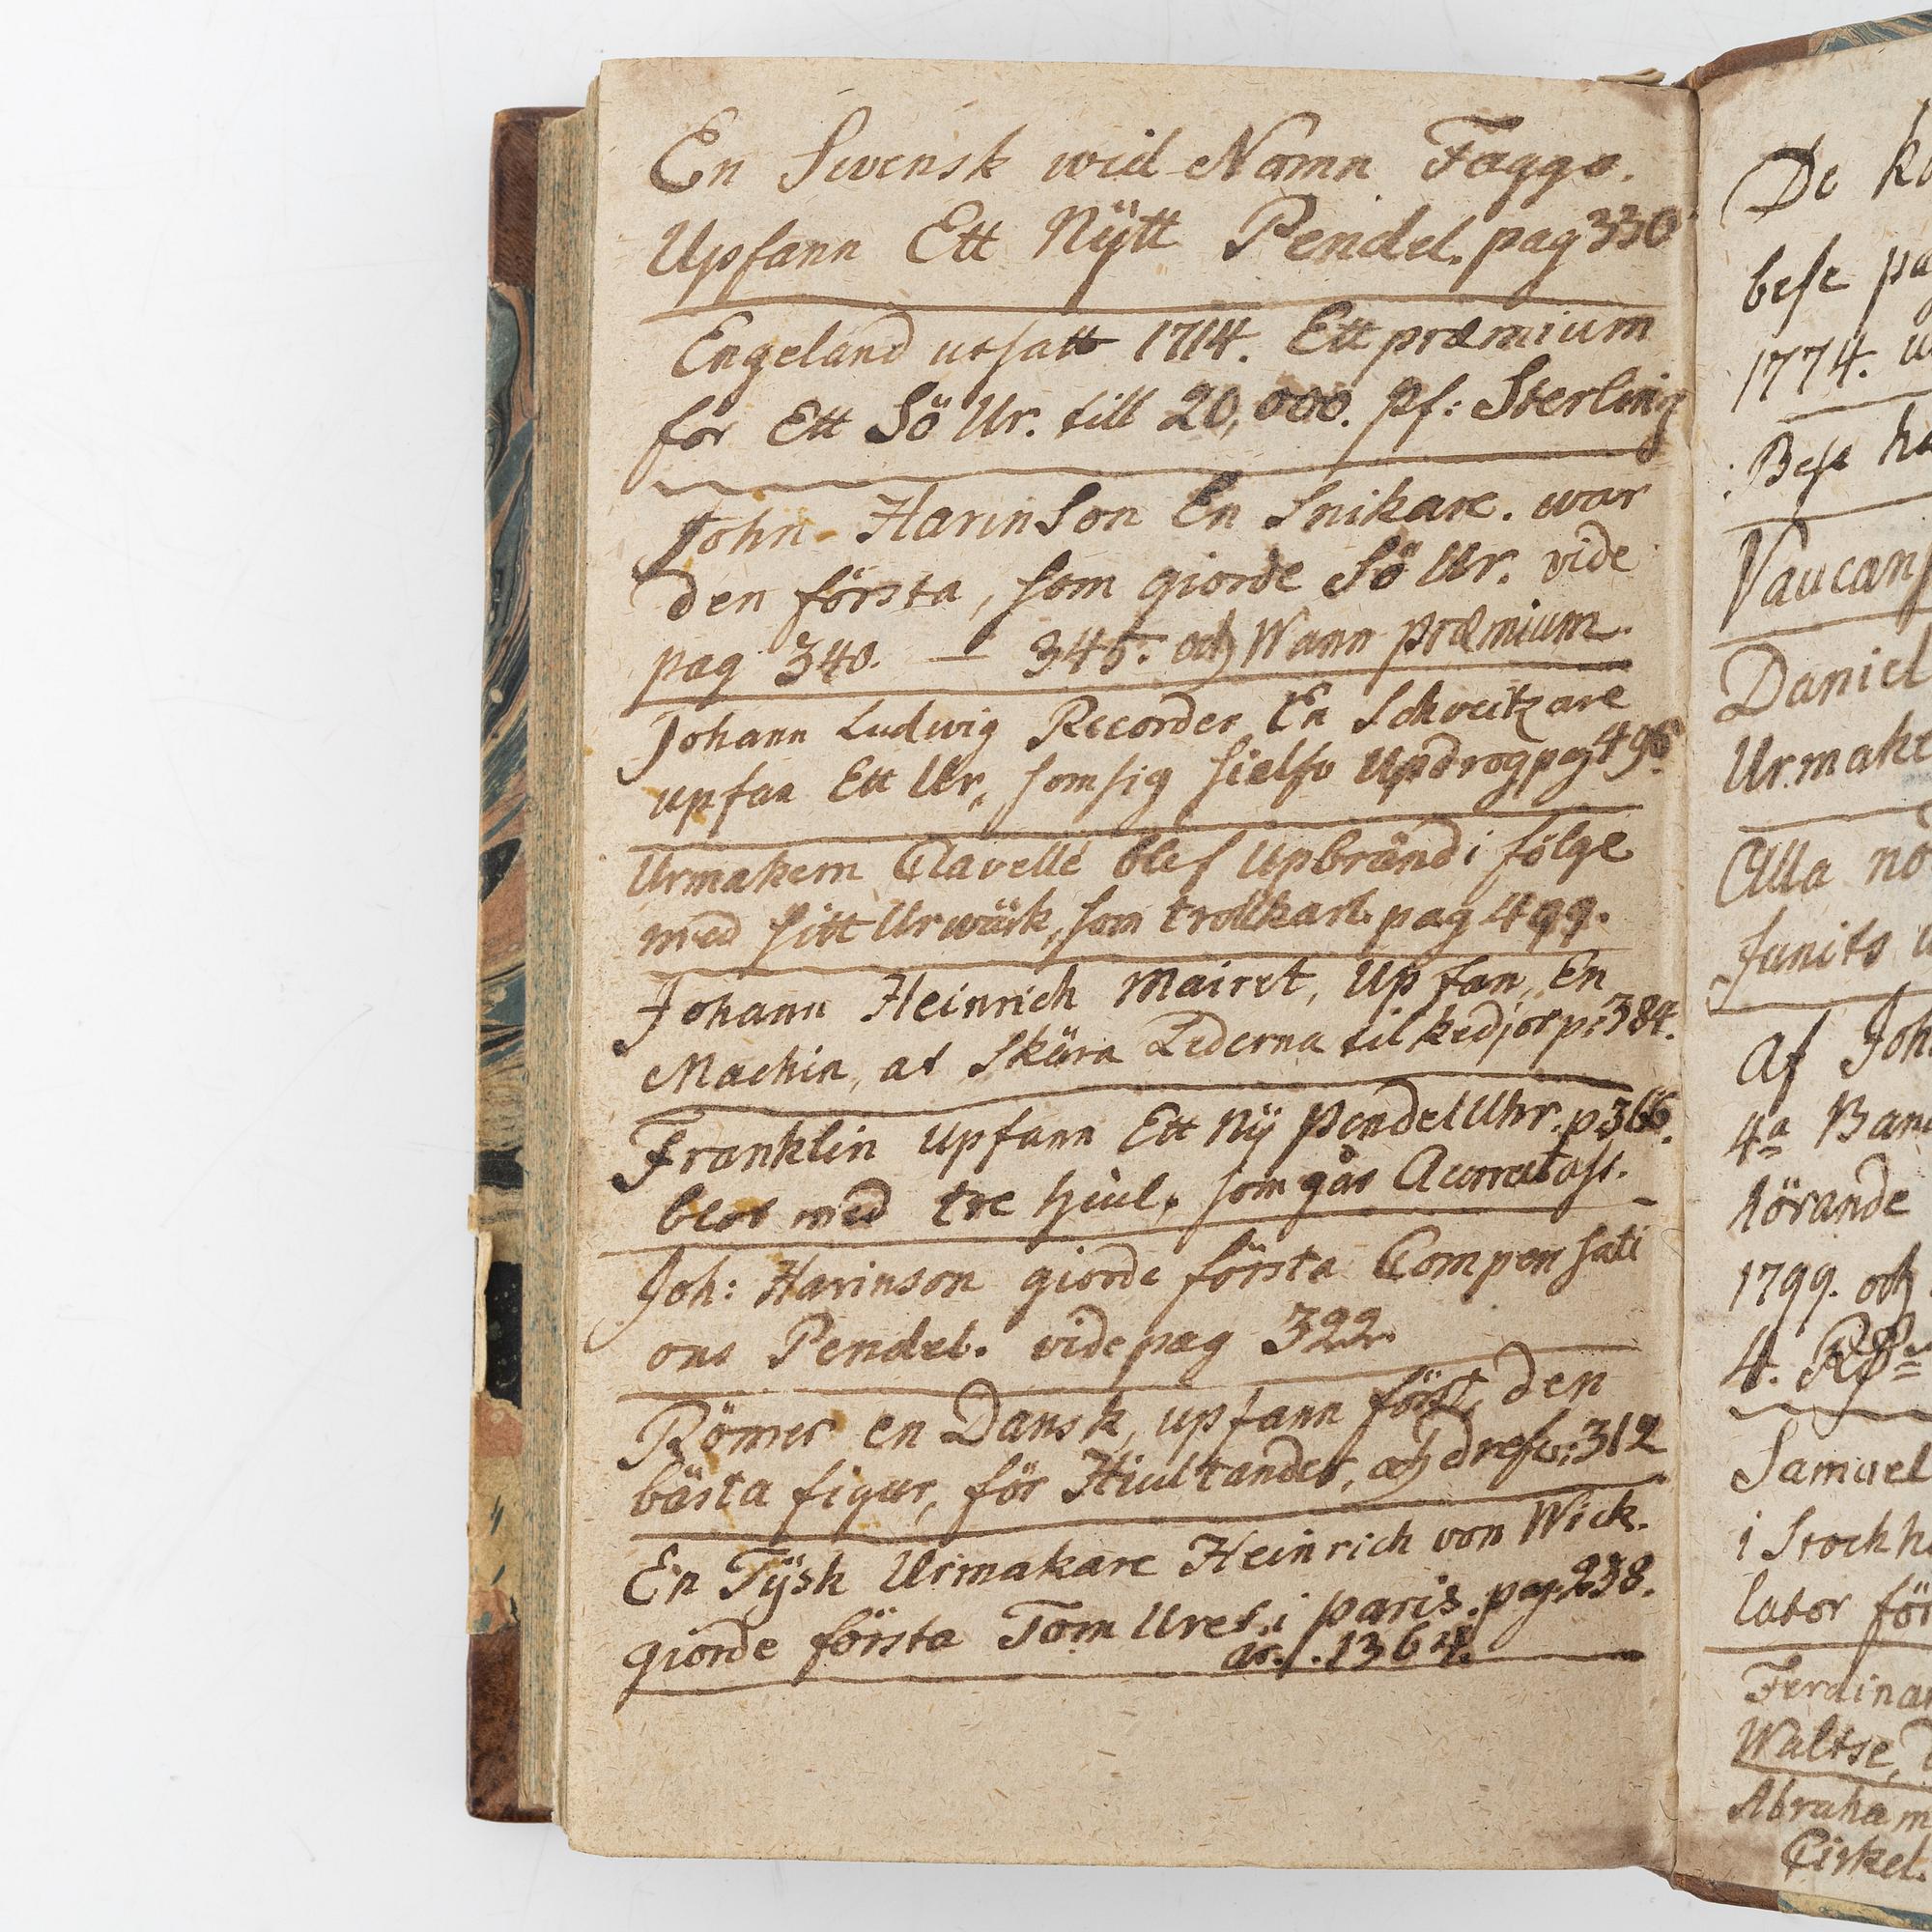 En Swensk wid Namn Faggo.
Upfann Ett Nÿtt Pendel. pag 330
Engeland utsatt 1714. Ett præmium
för Ett Sö Ur. till 20,000. pf: Sterling
John Harinson En Snikare. war
den första, som giorde Sö Ur. vide
pag 340. — 345. och Wann præmium.
Johann Ludwig Recorder En Schveitzare
upfan Ett Ur, som sig sielfv Updrog pag 496.
Urmakern Clavelle blef Upbränd i följe
med sitt Urwärk, som trollkarl. pag 499.
Johann Heinrich Mairet, Up fan, En
Machin, at Skära Lederna til kedjor p: 384.
Franklin upfann Ett Nÿ Pendel Uhr. p 366.
blot med tre hjul, som gås Accurat ast.
Joh: Harinson giorde första Compensati
ons Pendel. vide pag 322.
Römer en Dansk, upfann först, den
bästa figur, för Hiultander, och 312
En Tÿsk Urmakare Heinrich von Wick.
giorde första Tom Uret, i paris. pag. 238.
år. 1364.
De
bese
1774.
Bese
Daniel
Alla
Af
4a
hörande
1799. och
4.
Samuel
i
Waltse,
Abraham
Cirkel.